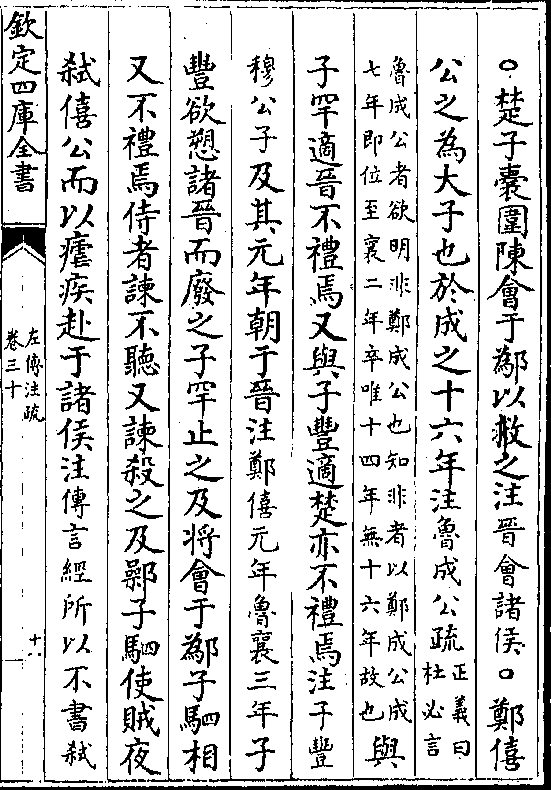 ○楚子囊圍陳會于鄬以救之注晉會諸侯○鄭僖
公之為大子也於成之十六年注魯成公疏正義曰杜必言
魯成公者欲明非鄭成公也知非者以鄭成公成
七年即位至襄二年卒唯十四年無十六年故也與
子罕適晉不禮焉又與子豐適楚亦不禮焉注子豐
穆公子及其元年朝于晉注鄭僖元年魯襄三年子
豐欲愬諸晉而廢之子罕止之及將會于鄬子駟相
又不禮焉侍者諫不聽又諫殺之及鄵子駟使賊夜
弒僖公而以瘧疾赴于諸侯注傳言經所以不書弒
欽定四庫全書
左傳注疏
卷三十
十六